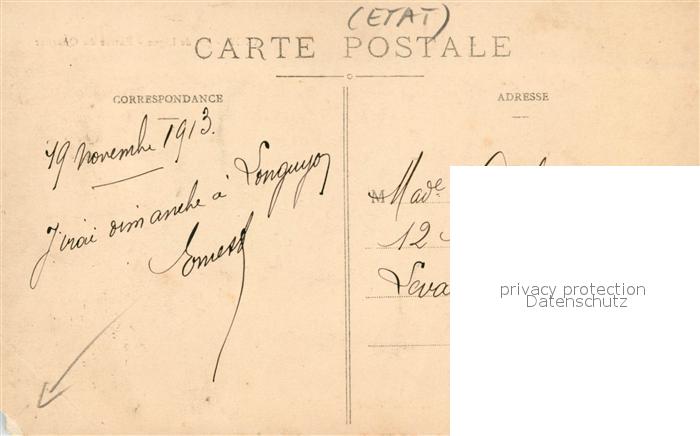 (ETAT)
CARTE POSTALE
CORRESPONDANCE
ADRESSE
19 novembre 1913.
J'irai dimanche à Longuyon
Ernest
M Made
12
Leva
privacy protection
Datenschutz